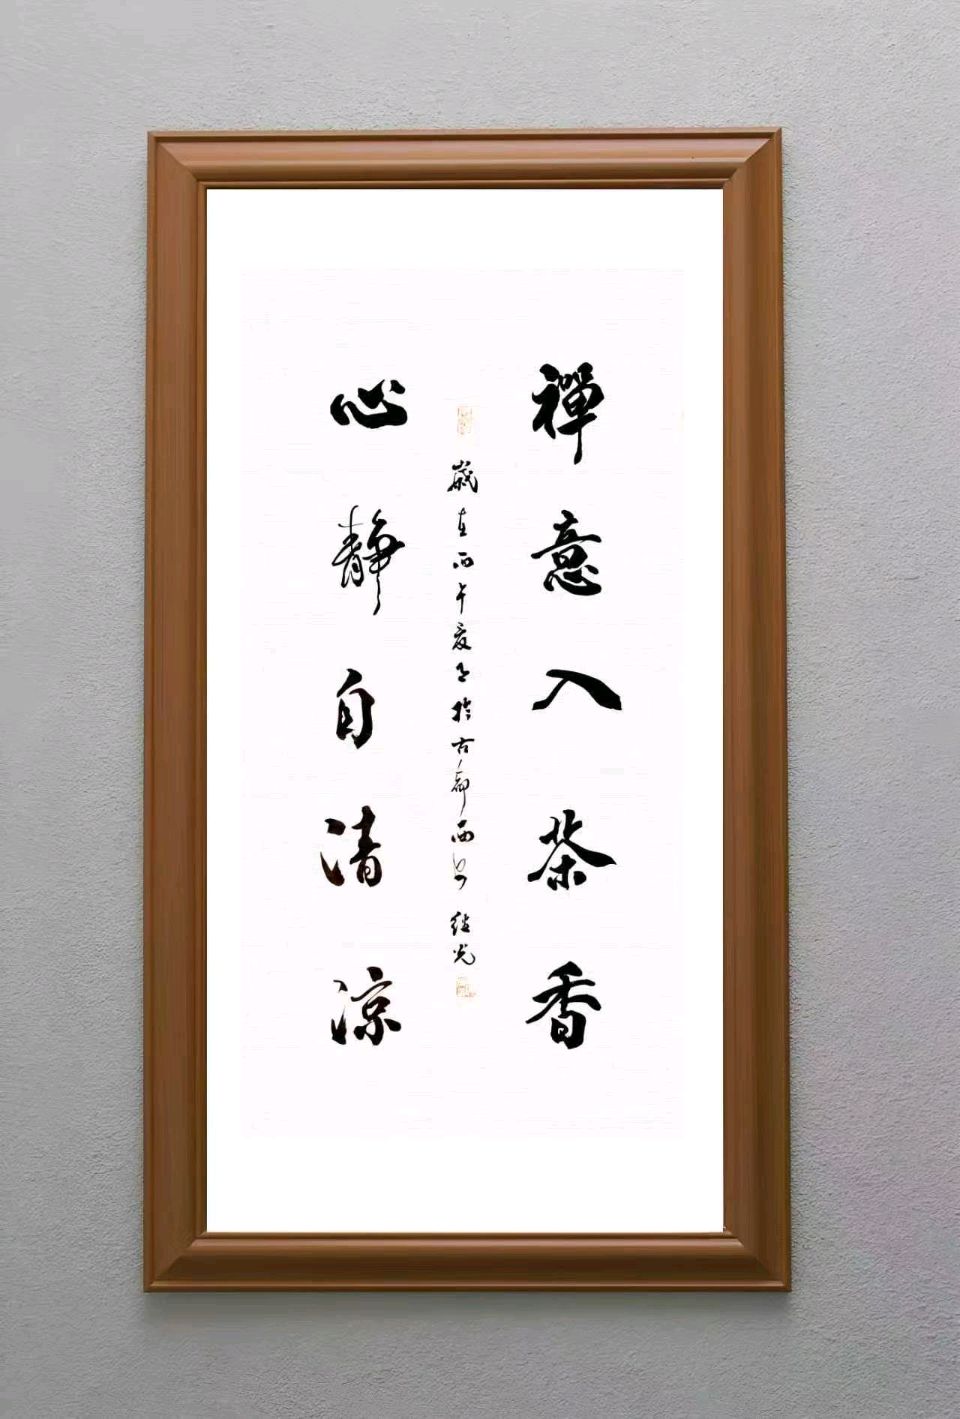 禪意入茶香
心静自清涼
歲在丙午夏於古都西安 继光